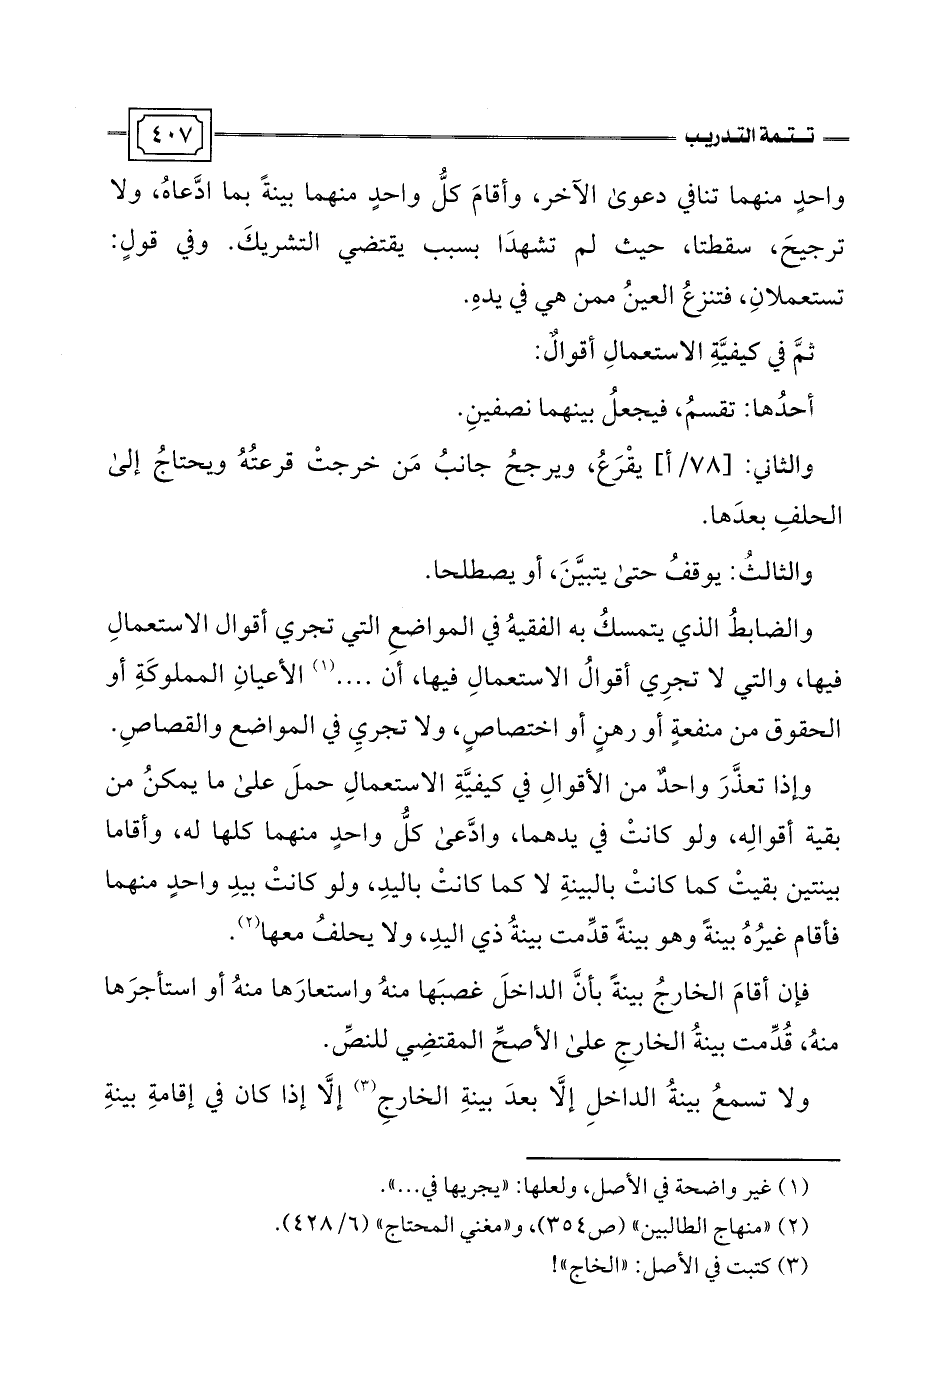 تـتـمة التدريب
٤٠٧
واحدٍ منهما تنافي دعوىٰ الآخر، وأقامَ كلُّ واحدٍ منهما بينةً بما ادَّعاهُ، ولا
ترجيحَ، سقطتا، حيث لم تشهدَا بسبب يقتضي التشريكَ. وفي قولٍ:
تستعملانِ، فتنزعُ العينُ ممن هي في يدهِ.
ثمَّ في كيفيَّةِ الاستعمالِ أقوالٌ:
أحدُها: تقسمُ، فيجعلُ بينهما نصفينِ.
والثاني: [٧٨/ أ] يقْرَعُ، ويرجحُ جانبُ مَن خرجتْ قرعتُهُ ويحتاجُ إلىٰ
الحلفِ بعدَها.
والثالثُ: يوقفُ حتىٰ يتبيَّنَ، أو يصطلحا.
والضابطُ الذي يتمسكُ به الفقيهُ في المواضعِ التي تجري أقوال الاستعمالِ
فيها، والتي لا تجرِي أقوالُ الاستعمالِ فيها، أن ....(١) الأعيانِ المملوكَةِ أو
الحقوق من منفعةٍ أو رهنٍ أو اختصاصٍ، ولا تجريِ في المواضع والقصاصِ.
وإذا تعذَّرَ واحدٌ من الأقوالِ في كيفيَّةِ الاستعمالِ حملَ علىٰ ما يمكنُ من
بقية أقوالِه، ولو كانتْ في يدهما، وادَّعىٰ كلُّ واحدٍ منهما كلها له، وأقاما
بينتين بقيتْ كما كانتْ بالبينةِ لا كما كانتْ باليدِ، ولو كانتْ بيدِ واحدٍ منهما
فأقام غيرُهُ بينةً وهو بينةً قدِّمت بينةُ ذي اليدِ، ولا يحلفُ معها(٢).
فإن أقامَ الخارجُ بينةً بأنَّ الداخلَ غصبَها منهُ واستعارَها منهُ أو استأجرَها
منهُ، قُدِّمت بينةُ الخارجِ علىٰ الأصحِّ المقتضِي للنصِّ.
ولا تسمعُ بينةُ الداخلِ إلَّا بعدَ بينةِ الخارجِ(٣) إلَّا إذا كان في إقامةِ بينةِ
(١) غير واضحة في الأصل، ولعلها: «يجريها في...».
(٢) «منهاج الطالبين» (ص٣٥٤)، و«مغني المحتاج» (٤٢٨/٦).
(٣) كتبت في الأصل: «الخاج»!